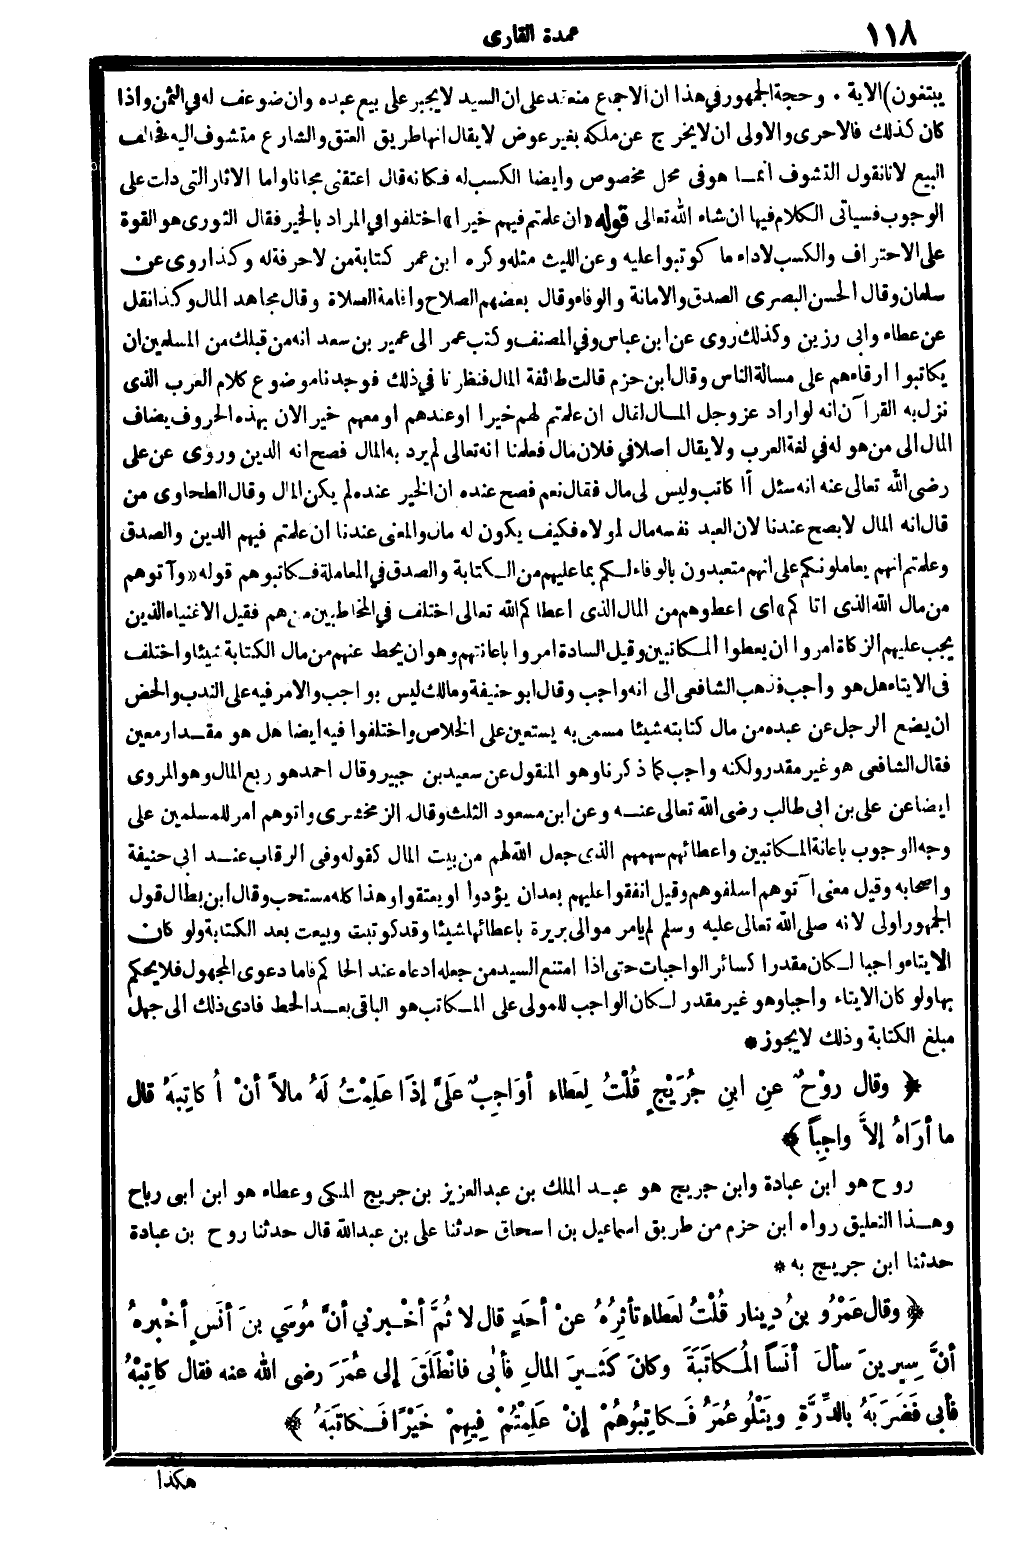 ١١٨
عمدة القارى
يبتغون) الاية ٠ وحجة الجمهور في هذا ان الاجماع منعقد على ان السيد لا يجبر على بيع عبده وان ضوعف له في الثمن واذا
كان كذلك فالاحرى والاولى ان لا يخرج عن ملكه بغير عوض لا يقال انها طريق العتق والشارع متشوف اليه فخالف
البيع لانا نقول التشوف انما هو فى محل مخصوص وايضا الكسب له فكانه قال اعتقنى مجانا واما الاثار التى دلت على
الوجوب فسياتى الكلام فيها ان شاء الله تعالى قوله «ان علمتم فيهم خيرا» اختلفوا في المراد بالخير فقال الثورى هو القوة
على الاحتراف والكسب لاداء ما كوتبوا عليه وعن الليث مثله وكره ابن عمر كتابة من لا حرفة له وكذا روى عن
سلمان وقال الحسن البصرى الصدق والامانة والوفاء وقال بعضهم الصلاح واقامة الصلاة وقال مجاهد المال وكذا نقل
عن عطاء وابى رزين وكذلك روى عن ابن عباس وفي المصنف وكتب عمر الى عمير بن سعد انه من قبلك من المسلمين ان
يكاتبوا ارقاءهم على مسالة الناس وقال ابن حزم قالت طائفة المال فنظرنا في ذلك فوجدنا موضوع كلام العرب الذى
نزل به القرآن انه لو اراد عز وجل المال لقال ان علمتم لهم خيرا او عندهم او معهم خير الان بهذه الحروف يضاف
المال الى من هو له في لغة العرب ولا يقال اصلا في فلان مال فعلمنا انه تعالى لم يرد به المال فصح انه الدين وروى عن على
رضى الله تعالى عنه انه سئل أا كاتب وليس لى مال فقال نعم فصح عنده ان الخير عنده لم يكن المال وقال الطحاوى من
قال انه المال لا يصح عندنا لان العبد نفسه مال لمولاه فكيف يكون له مال والمعنى عندنا ان علمتم فيهم الدين والصدق
وعلمتم انهم يعاملونكم على انهم متعبدون بالوفاء لكم بما عليهم من الكتابة والصدق في المعاملة فكاتبوهم قوله «وآتوهم
من مال الله الذى اتاكم» اى اعطوهم من المال الذى اعطاكم الله تعالى اختلف في المخاطبين من هم فقيل الاغنياء الذين
يجب عليهم الزكاة امروا ان يعطوا المكاتبين وقيل السادة امروا باعانتهم وهو ان يحط عنهم من مال الكتابة شيئا واختلف
فى الايتاء هل هو واجب فذهب الشافعى الى انه واجب وقال ابو حنيفة ومالك ليس بواجب والامر فيه على الندب والحض
ان يضع الرجل عن عبده من مال كتابته شيئا مسمى به يستعين على الخلاص واختلفوا فيه ايضا هل هو مقدار معين
فقال الشافعى هو غير مقدر ولكنه واجب كما ذكرنا وهو المنقول عن سعيد بن جبير وقال احمد هو ربع المال وهو المروى
ايضا عن على بن ابى طالب رضى الله تعالى عنه وعن ابن مسعود الثلث وقال الزمخشرى واتوهم امر للمسلمين على
وجه الوجوب باعانة المكاتبين واعطائهم سهمهم الذى جعل الله لهم من بيت المال كقوله وفى الرقاب عند ابي حنيفة
واصحابه وقيل معنى آتوهم اسلفوهم وقيل انفقوا عليهم بعد ان يؤدوا او يعتقوا وهذا كله مستحب وقال ابن بطال قول
الجمهور اولى لانه صلى الله تعالى عليه وسلم لم يامر موالى بريرة باعطائها شيئا وقد كوتبت وبيعت بعد الكتابة ولو كان
الايتاء واجبا لكان مقدرا كسائر الواجبات حتى اذا امتنع السيد من جعله ادعاه عند الحاكم فاما دعوى المجهول فلا يحكم
بها ولو كان الايتاء واجبا وهو غير مقدر لكان الواجب للمولى على المكاتب هو الباقى بعد الحط فادى ذلك الى جهل
مبلغ الكتابة وذلك لا يجوز *
﴿ وقال روْحٌ عنِ ابنِ جُرَيْجٍ قُلْتُ لِعَطاءٍ أوَاجِبٌ عَلَىَّ إذَا عَلِمْتُ لَهُ مالاً أنْ أُكاتِبَهُ قال
ما أرَاهُ إلاَّ واجِباً ﴾
روح هو ابن عبادة وابن جريج هو عبد الملك بن عبد العزيز بن جريج المكى وعطاء هو ابن ابى رباح
وهذا التعليق رواه ابن حزم من طريق اسماعيل بن اسحاق حدثنا على بن عبدالله قال حدثنا روح بن عبادة
حدثنا ابن جريج به *
﴿ وقال عَمْرُو بنُ دِينار قُلْتُ لعَطاءٍ تأثِرُهُ عنْ أحَدٍ قال لا ثُمَّ أخْبرني أنَّ مُوسَي بنَ أنَسٍ أخْبرهُ
أنَّ سِيرينَ سألَ أنَساً المُكاتَبَةَ وكانَ كَثيرَ المالِ فأبٰى فانْطَلَقَ إلى عُمَرَ رضى الله عنه فقال كاتِبْهُ
فأبى فَضَرَبَهُ بالدِّرَّةِ ويَتْلُو عُمَرُ فَكاتِبُوهُمْ إنْ علِمْتُمْ فِيهِمْ خَيْرًا فَكاتَبَهُ ﴾
هكذا